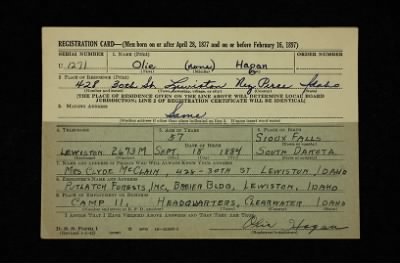 REGISTRATION CARD—(Men born on or after April 28, 1877 and on or before February 16, 1897)
SERIAL NUMBER 1. NAME (Print) ORDER NUMBER
U 1271 Olie (none) Hagan
(First) (Middle) (Last)
2. PLACE OF RESIDENCE (Print)
428 30th St. Lewiston Nez Perce Idaho
(Number and street) (Town, township, village, or city) (County) (State)
[THE PLACE OF RESIDENCE GIVEN ON THE LINE ABOVE WILL DETERMINE LOCAL BOARD
JURISDICTION; LINE 2 OF REGISTRATION CERTIFICATE WILL BE IDENTICAL]
3. MAILING ADDRESS
Same
[Mailing address if other than place indicated on line 2. If same insert word same]
4. TELEPHONE 5. AGE IN YEARS 6. PLACE OF BIRTH
57 SIOUX FALLS
DATE OF BIRTH
LEWISTON 2673M SEPT. 18 1884 SOUTH DAKOTA
7. NAME AND ADDRESS OF PERSON WHO WILL ALWAYS KNOW YOUR ADDRESS
MRS CLYDE MCCLAIN, 428-30TH ST. LEWISTON, IDAHO
8. EMPLOYER'S NAME AND ADDRESS
POTLATCH FORESTS, INC., BREIER BLDG, LEWISTON, IDAHO
9. PLACE OF EMPLOYMENT OR BUSINESS
CAMP 11, HEADQUARTERS, CLEARWATER IDAHO
I AFFIRM THAT I HAVE VERIFIED ABOVE ANSWERS AND THAT THEY ARE TRUE.
D. S. S. Form 1
Olie Hagan